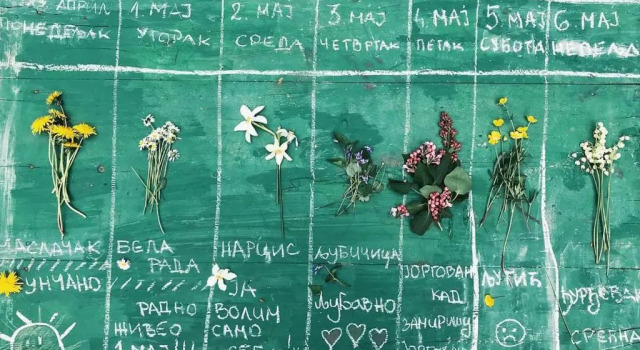 АПРИЛ
ПОНЕДЕЉАК
1. МАЈ
УТОРАК
2. МАЈ
СРЕДА
3 МАЈ
ЧЕТВРТАК
4. МАЈ
ПЕТАК
5. МАЈ
СУБОТА
6. МАЈ
НЕДЕЉА
МАСЛАЧАК
УНЧАНО
БЕЛА
РАДА
РАДНО
ЖИВЕО
1 МАЈ!!!
НАРЦИС
ЈА
ВОЛИМ
САМО
ЉУБИЧИЦА
ЉУБАВНО
ЈОРГОВАН
КАД
ЗАМИРИШУ
ЉУТИЋ
ЂУРЂЕВА
СРЕЋНА